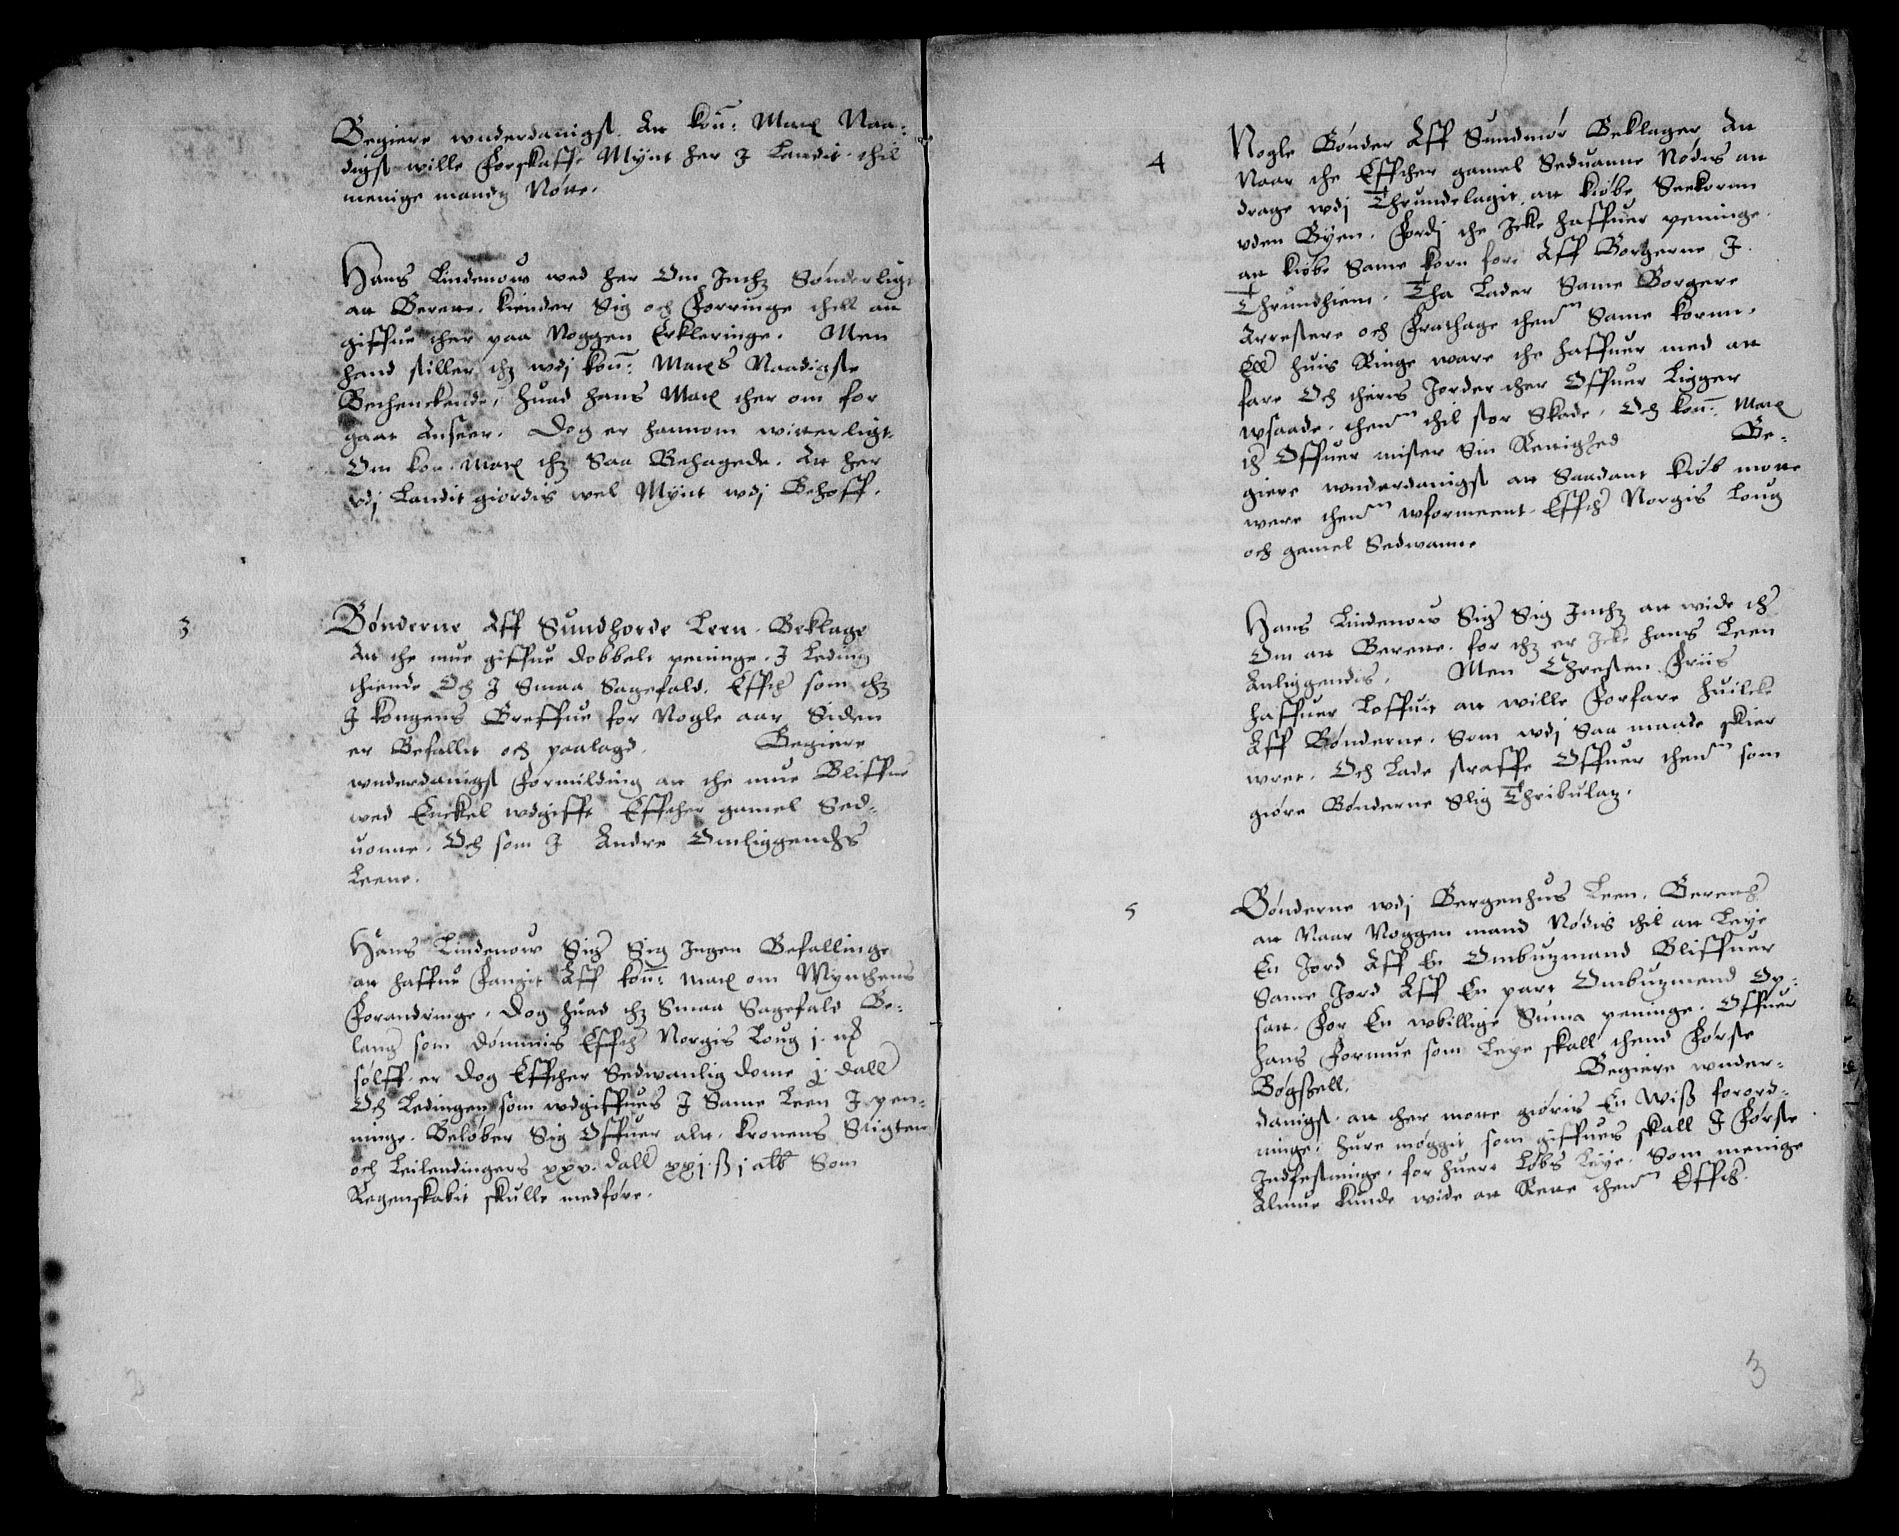 Begiere wnderdanigst. At kon: Matt Naa-
digst wille Forskaffe Mynt her I Landit thil
menige mandz Nøtte.
Hans Lindenow wed her Om Inthz Sønderligt
at Berette. kiender Sig och Forringe thill at
giffue ther paa Noggen Erkleringe. Men
hand stiller thz wdj kon: Matts Naadigste
Bethenckende, huad hans Matt ther om for
gaat Anseer. Dog er hannom witterligt
Om kon. Matt thz Saa Behagede. At her
wdj Landit giordis wel Mynt wdj Behoff.
3
Bønderne Aff Sundhorde Leen. Beklage
At the mue giffue dobbelt peninge. I Leding
thiende Och I Smaa Sagefald. Effth som thz
I kongens Breffue for Nogle aar Siden
er Befallit och paalagd. Begiere
wnderdanigst Formilding at the mue Bliffue
wed Enckel wdgifft Effther gamel Sed-
uonne. Och som I Andre Omliggendis
Leene.
Hans Lindenow Sigs Sig Ingen Befallinge
at haffue Fangit Aff kon: Matt om Mynthens
Forandringe. Dog huad thz Smaa Sagefald Be-
lang som dømmis Effth Norgis Loug j. m
sølff. er Dog Effther Sedwanlig dome j. dall
Och Ledingen som wdgiffues I Same Leen I pen-
ninge. Beløber Sig Offuer alt. kronens Stigten
och Leilendingers xxv. dall xxj ß j alb Som
Regenskabit skulle medføre.
2
4
Nogle Bønder Aff Sundmør Beklager At
Naar the Effther gamel Seduanne Nødes at
drage wdj Thrundelagit at kiøbe Seekornn
vden Byen. Fordj the Icke haffuer peninge.
at kiøbe Same korn for. Aff Borgerne I
Thrundhiem. Tha Lader Same Borgere
Arrestere och Frathage them Same kornn.
Ell huis Ringe ware the haffuer med at
fare Och theris Jorder ther Offuer Ligger
wsaade. them thil stor Skade. Och kon: Matt
th Offuer mister Sin Rettighed Be-
giere wnderdanigst at Saadant kiøb motte
were them wformeent Effth Norgis Loug
och gamel Sedwanne
Hans Lindenow Sigs Sig Inthz at wide th
Om at Berette. for thz er Icke hans Leen
Anliggendis. Men Thresten Friis
haffuer Loffuit at wille Forfare huilcke
Aff Bønderne. Som wdj Saa maade skier
wret. Och Lade straffe Offuer them som
giøre Bønderne Slig Thribulaz.
5
Bønderne wdj Bergenhus Leen. Beretth
at Naar Noggen mand Nødis thil at Leye
En Jord Aff En Ombutzmand Bliffuer
Same Jord Aff En part Ombutzmend Op-
sat. For En wbillige Suma peninge. Offuer
hans Formue som Leye skall thend Første
Bøgßell. Begiere wnder-
danigst. at ther motte giøris En Wiß forord-
ninge, hure møggit som giffues skall I Første
Indfestninge. for huert Løbs Leye. Som menige
Almue kunde wide at Rette them Effth.
3